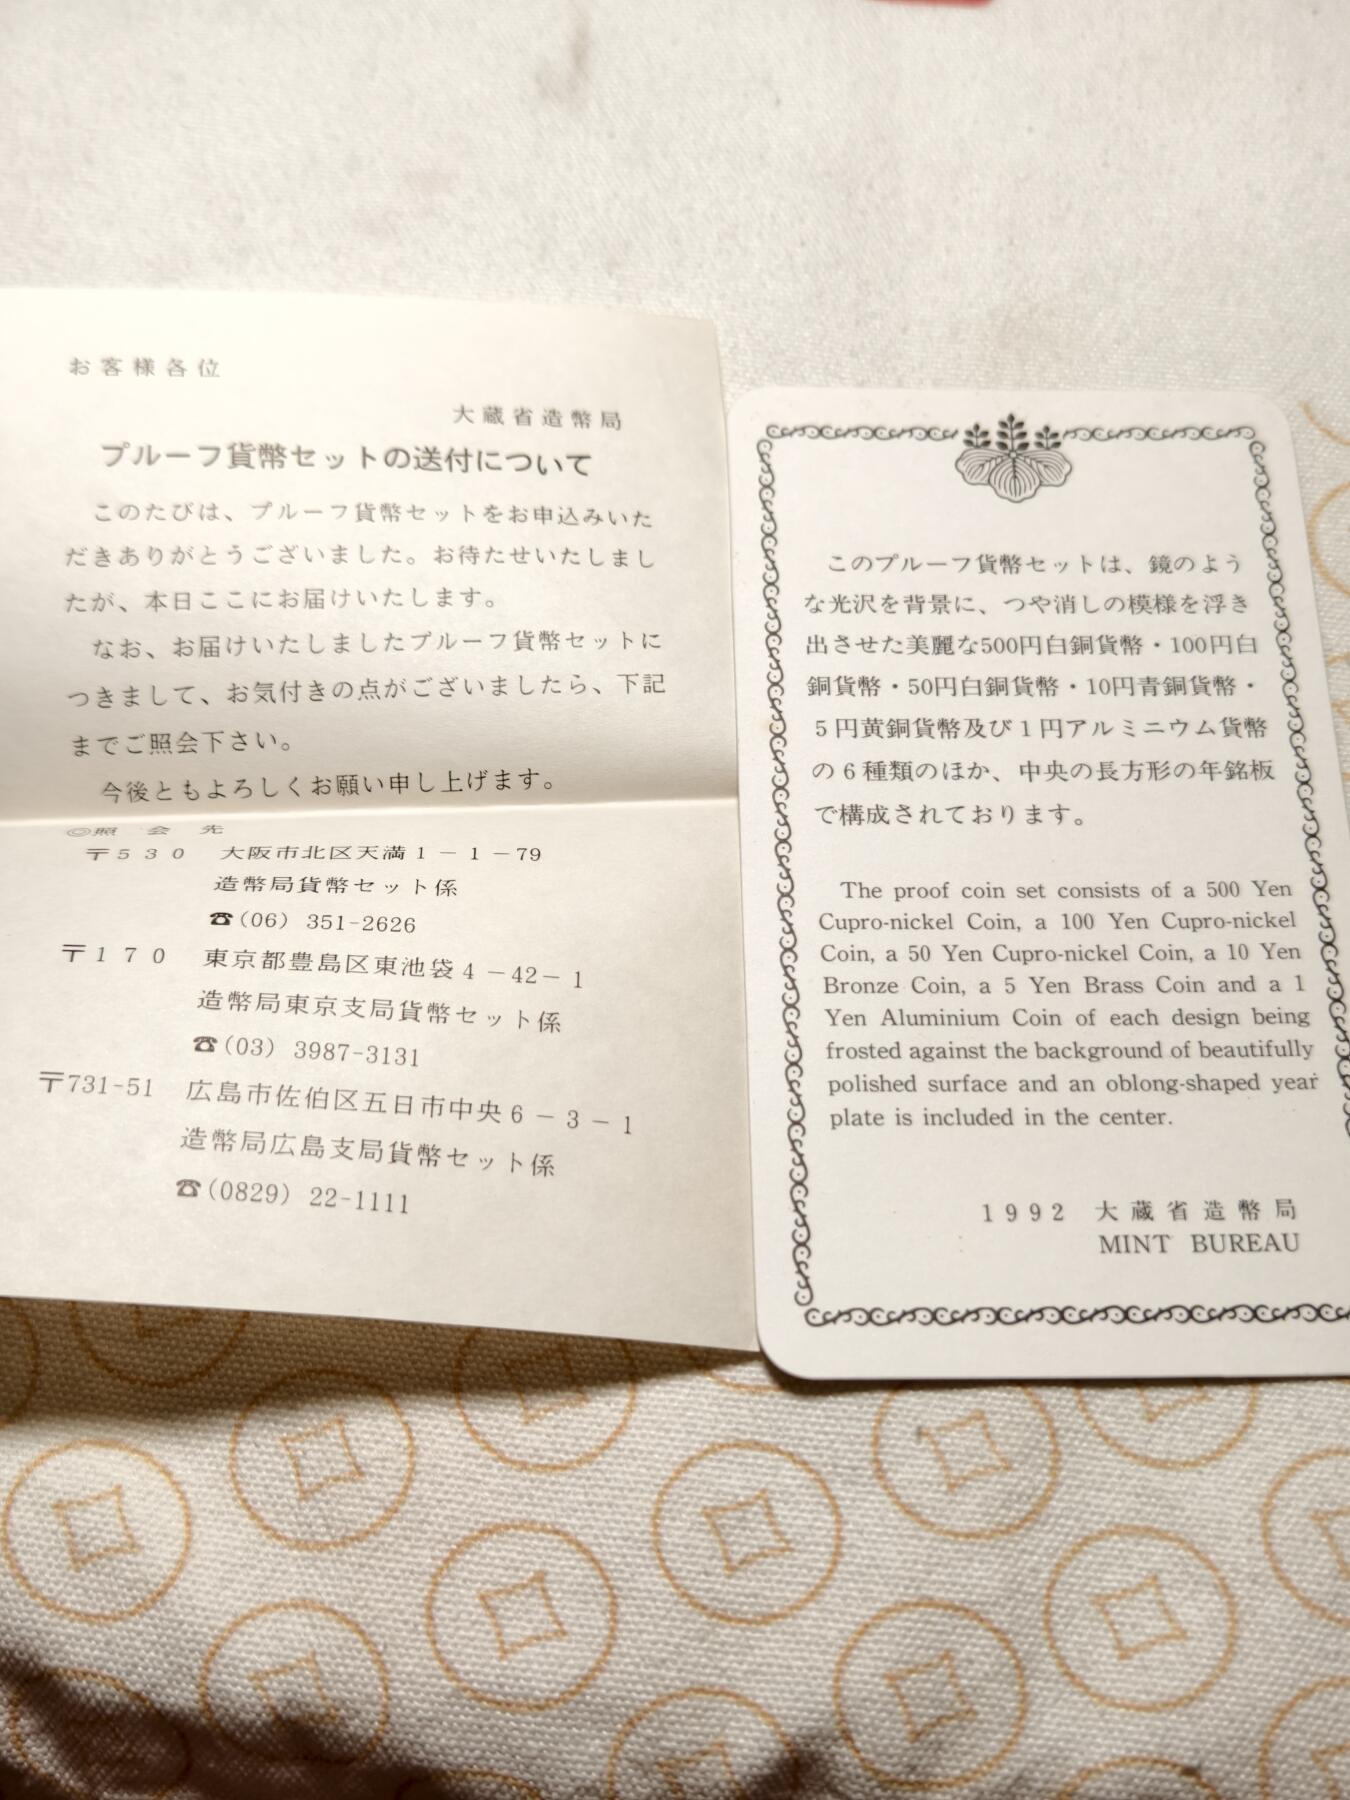 お客様各位
大蔵省造幣局
プルーフ貨幣セットの送付について
このたびは、プルーフ貨幣セットをお申込みいた
だきありがとうございました。お待たせいたしまし
たが、本日ここにお届けいたします。
なお、お届けいたしましたプルーフ貨幣セットに
つきまして、お気付きの点がございましたら、下記
までご照会下さい。
今後ともよろしくお願い申し上げます。
◎照会先
〒530 大阪市北区天満1-1-79
造幣局貨幣セット係
☎(06) 351-2626
〒170 東京都豊島区東池袋4-42-1
造幣局東京支局貨幣セット係
☎(03) 3987-3131
〒731-51 広島市佐伯区五日市中央6-3-1
造幣局広島支局貨幣セット係
☎(0829) 22-1111
このプルーフ貨幣セットは、鏡のよう
な光沢を背景に、つや消しの模様を浮き
出させた美麗な500円白銅貨幣・100円白
銅貨幣・50円白銅貨幣・10円青銅貨幣・
5円黄銅貨幣及び1円アルミニウム貨幣
の6種類のほか、中央の長方形の年銘板
で構成されております。
The proof coin set consists of a 500 Yen
Cupro-nickel Coin, a 100 Yen Cupro-nickel
Coin, a 50 Yen Cupro-nickel Coin, a 10 Yen
Bronze Coin, a 5 Yen Brass Coin and a 1
Yen Aluminium Coin of each design being
frosted against the background of beautifully
polished surface and an oblong-shaped year
plate is included in the center.
1992 大蔵省造幣局
MINT BUREAU